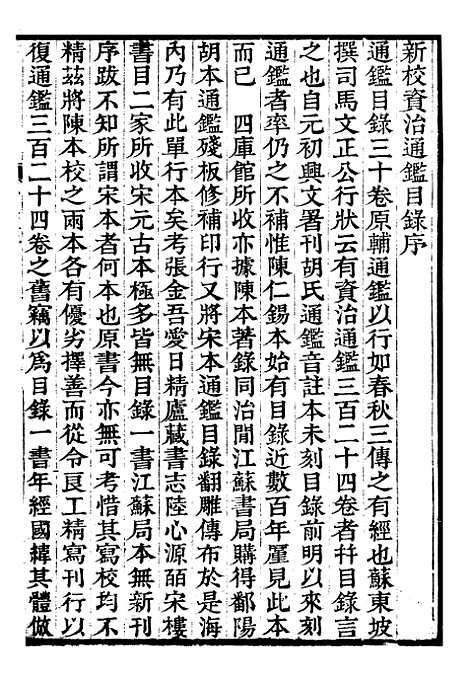 新校資治通鑑目錄序
通鑑目錄三十卷原輔通鑑以行如春秋三傳之有經也蘇東坡
撰司馬文正公行狀云有資治通鑑三百二十四卷者幷目錄言
之也自元初興文署刊胡氏通鑑音註本未刻目錄前明以來刻
通鑑者率仍之不補惟陳仁錫本始有目錄近數百年厪見此本
而已　四庫館所收亦據陳本著錄同治閒江蘇書局購得鄱陽
胡本通鑑殘板修補印行又將宋本通鑑目錄翻雕傳布於是海
內乃有此單行本矣考張金吾愛日精廬藏書志陸心源皕宋樓
書目二家所收宋元古本極多皆無目錄一書江蘇局本無新刊
序跋不知所謂宋本者何本也原書今亦無可考惜其寫校均不
精茲將陳本校之兩本各有優劣擇善而從令良工精寫刊行以
復通鑑三百二十四卷之舊竊以爲目錄一書年經國緯其體倣